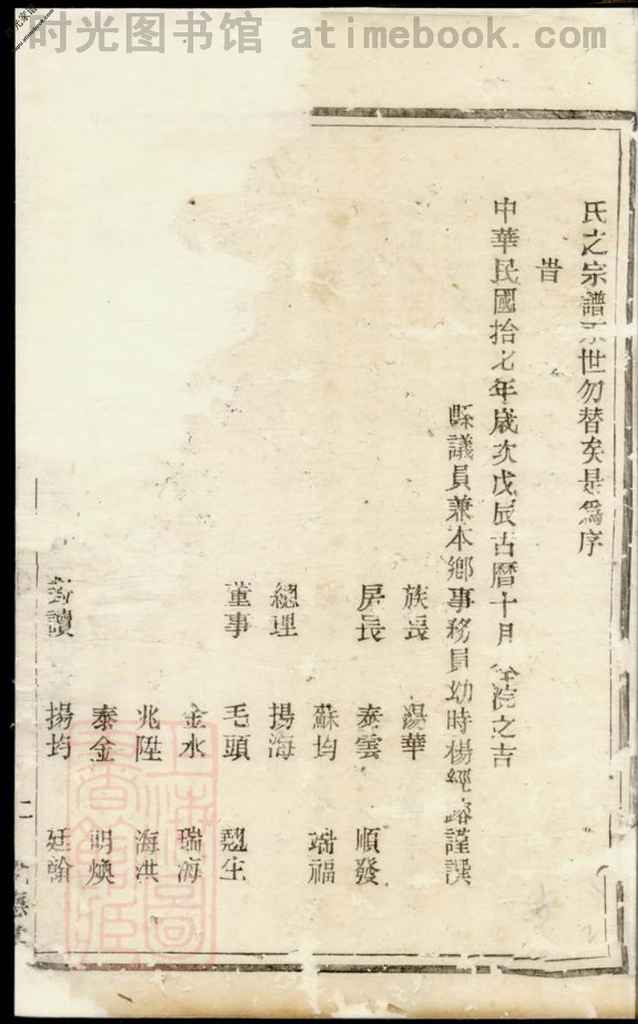 时光图书馆 atimebook.com
氏之宗譜永世勿替矣是為序
旹
中華民國拾七年歲次戊辰古曆十月 浣之吉
縣議員兼本鄉事務員幼時楊經 謹譔
族長 錫華
房長 泰雲 順發
蘇均 瑞福
總理 揚海
董事 毛頭 生
金水 瑞海
兆陞 海洪
泰金 明煥
對讀 揚均 廷翰
二